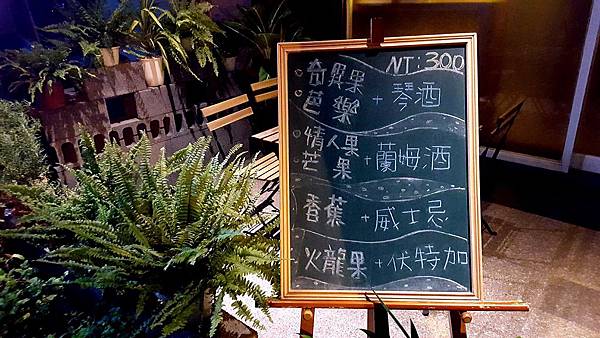 NT:300
奇異果
芭樂 + 琴酒
情人果
芒果 + 蘭姆酒
香蕉 + 威士忌
火龍果 + 伏特加